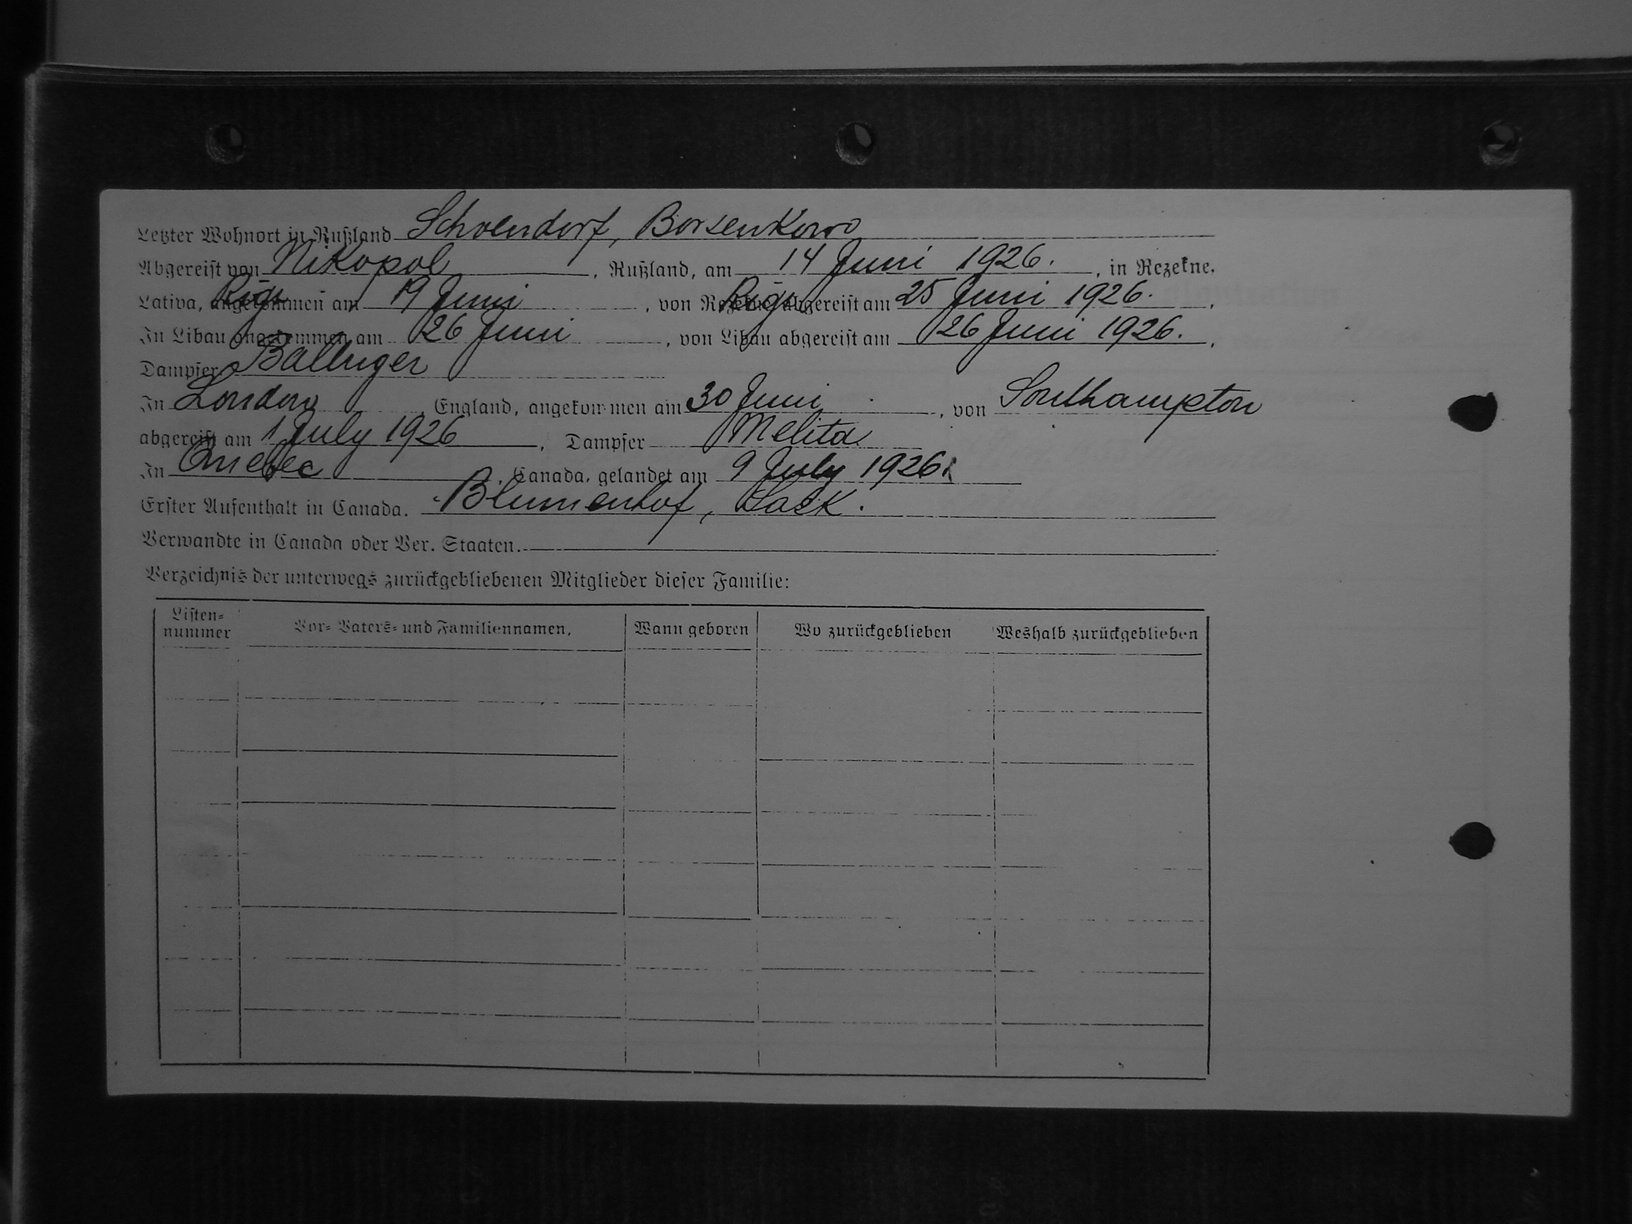 Letzter Wohnort in Rußland Schoendorf, Borsenkowo
Abgereist von Nikopol, Rußland, am 14 Juni 1926., in Rezekne.
Lativa, Riga angekommen am 19 Juni, von Riga abgereist am 25 Juni 1926.
In Libau angekommen am 26 Juni, von Libau abgereist am 26 Juni 1926.
Dampfer Baltriger
In London England, angekommen am 30 Juni, von Southampton
abgereist am 1 July 1926, Dampfer Melita
In Quebec, Canada, gelandet am 9 July 1926.
Erster Aufenthalt in Canada. Blumenhof, Sask.
Verwandte in Canada oder Ver. Staaten.
Verzeichnis der unterwegs zurückgebliebenen Mitglieder dieser Familie:
Listen-nummer Vor- Vaters- und Familiennamen. Wann geboren Wo zurückgeblieben Weshalb zurückgeblieben